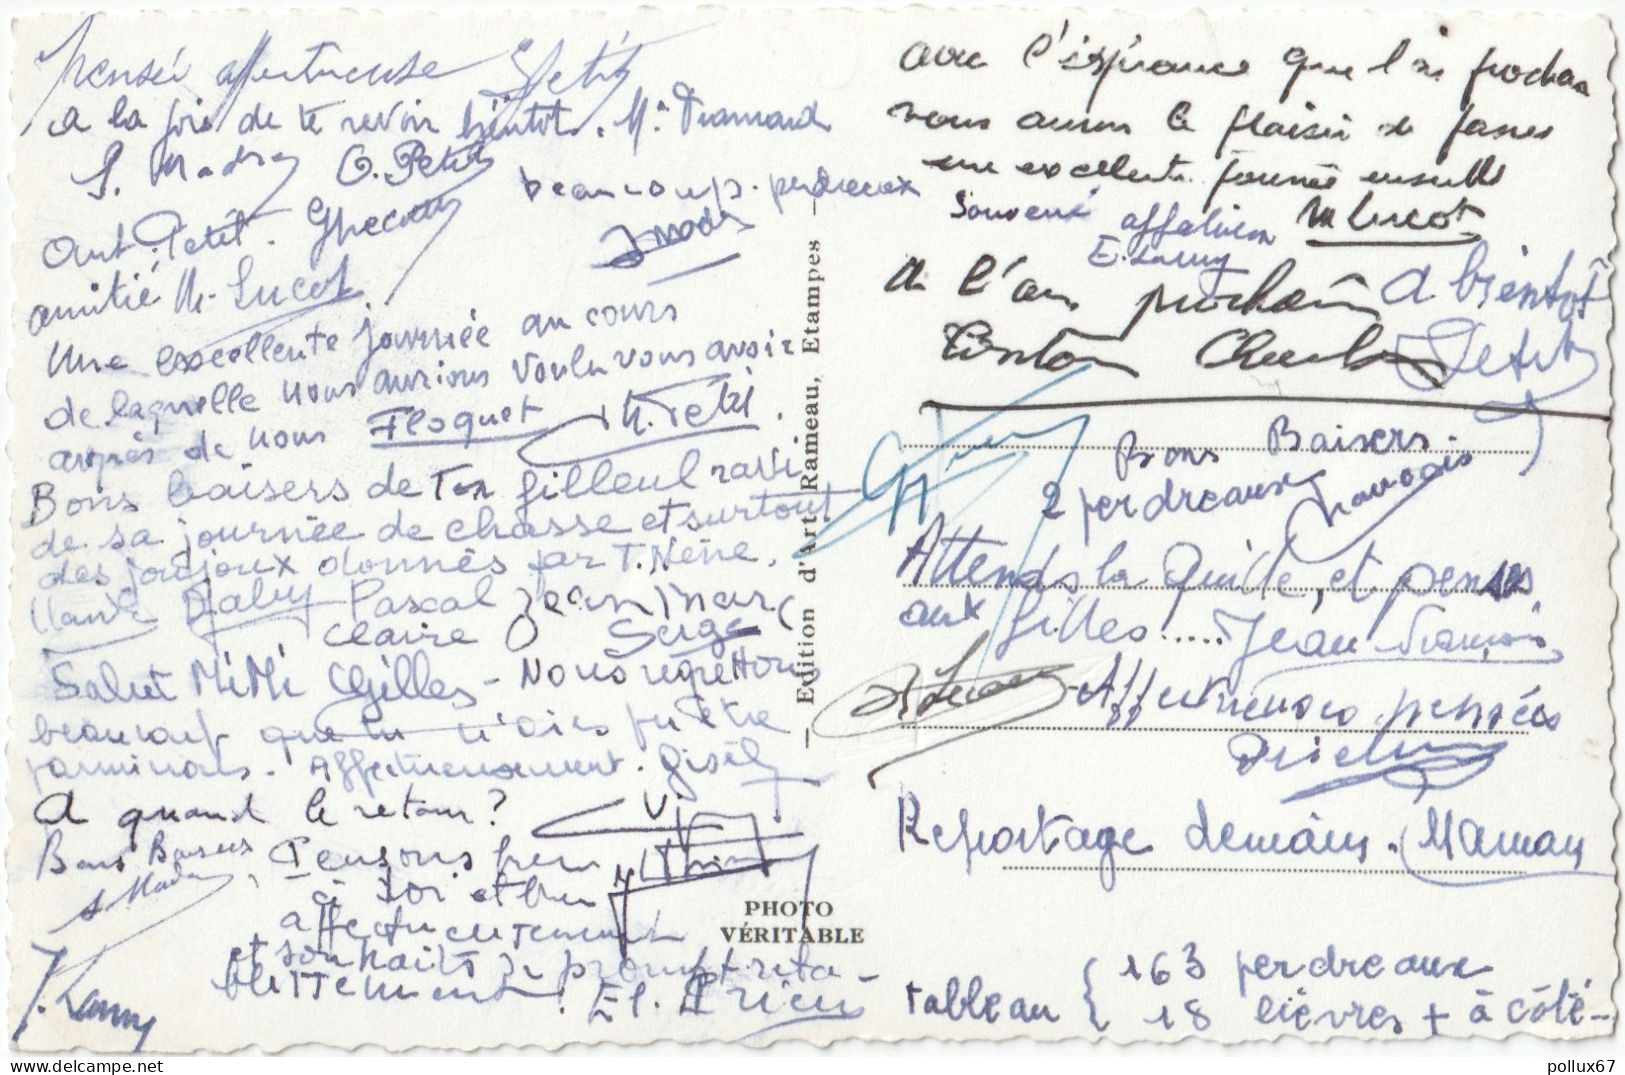 Pensée affectueuse Petit
a la joie de te revoir bientôt. Mn Framard
S. Madre O. Petit
beaucoup perdreaux
Ant. Petit.
amitié M. Lucot
Une excellente journée au cours
de laquelle nous aurions voulu vous avoir
auprès de nous Floquet M. Petit.
Bons baisers de Ton filleul ravi
de sa journée de chasse et surtout
des joujoux donnés par T. Nène.
Pascal Jean Marc
Claire Serge
Salut MiMi Gilles - Nous regrettons
beaucoup que tu n'aies pu être
parmi nous. Affectueusement. Gisèle
A quand le retour?
Bons Baisers
Pensons bien
à Toi et bien
affectueusement
et souhaits de prompt réta-
blissement! El. Prieur
J. Lamy
Edition d'Art Rameau, Etampes
PHOTO
VÉRITABLE
avec l'espérance que l'an prochain
nous aurons le plaisir de passer
une excellente journée ensemble
Souvenir affectueux M Lucot
E. Lamy
A l'an prochain A bientôt
Tonton Charles Petit
Bons Baisers.
2 perdreaux François
Attends la Quille, et penses
aux filles..... Jean François
Affectueuses pensées
Prieur
Reportage demain. Maman
Tableau { 163 perdreaux
18 lièvres + à côté-
pollux67